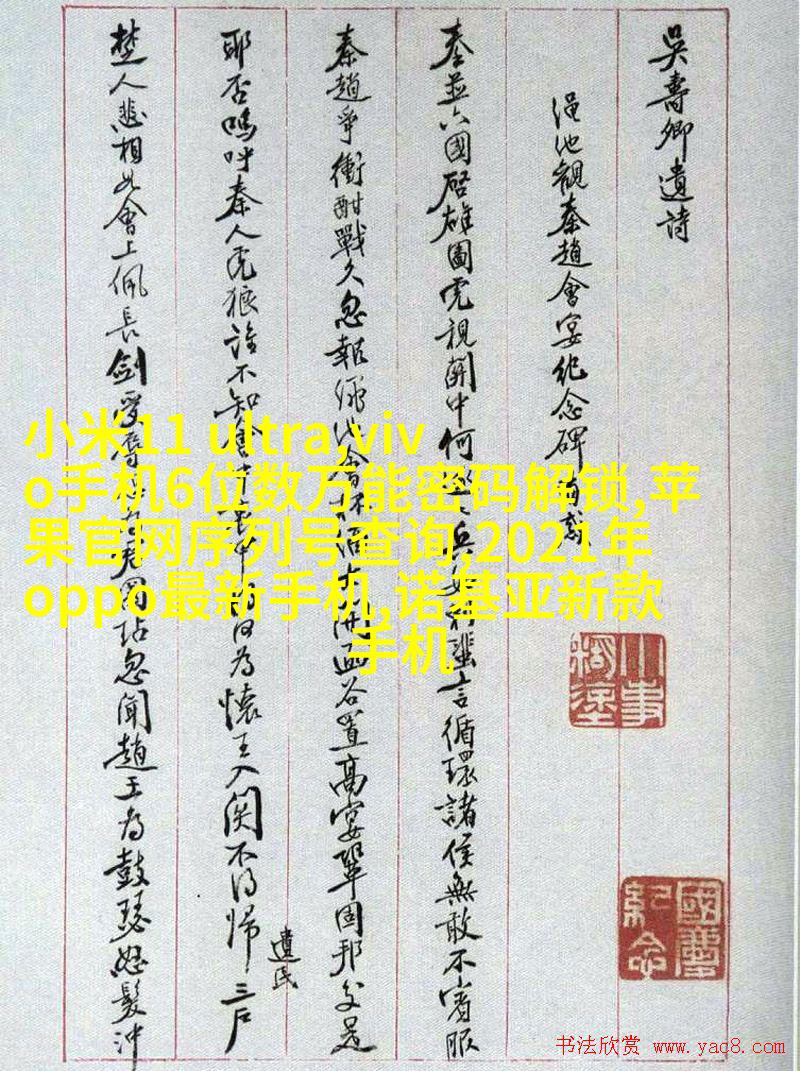 吳壽卿遺詩
渑池觀秦趙會宴纪念碑
秦並六國啓雄圖虎視關中何 兵 蜚言循環諸侯無敢不賓服
秦趙爭衡酣戰久忽報 池會杯酒 函谷置高宴鞏固邦交是
耶否嗚呼秦人虎狼誰不知 為懷王入関不得歸三户
遺民
楚人悲相如會上佩長劍 忽聞趙王為鼓瑟怒髮沖
小米11 ultra,viv
o手机6位数万能密码解锁,苹
果官网序列号查询,2021年
oppo最新手机,诺基亚新款
手机
小事糊塗
國慶紀念
书法欣赏 www.yac8.com